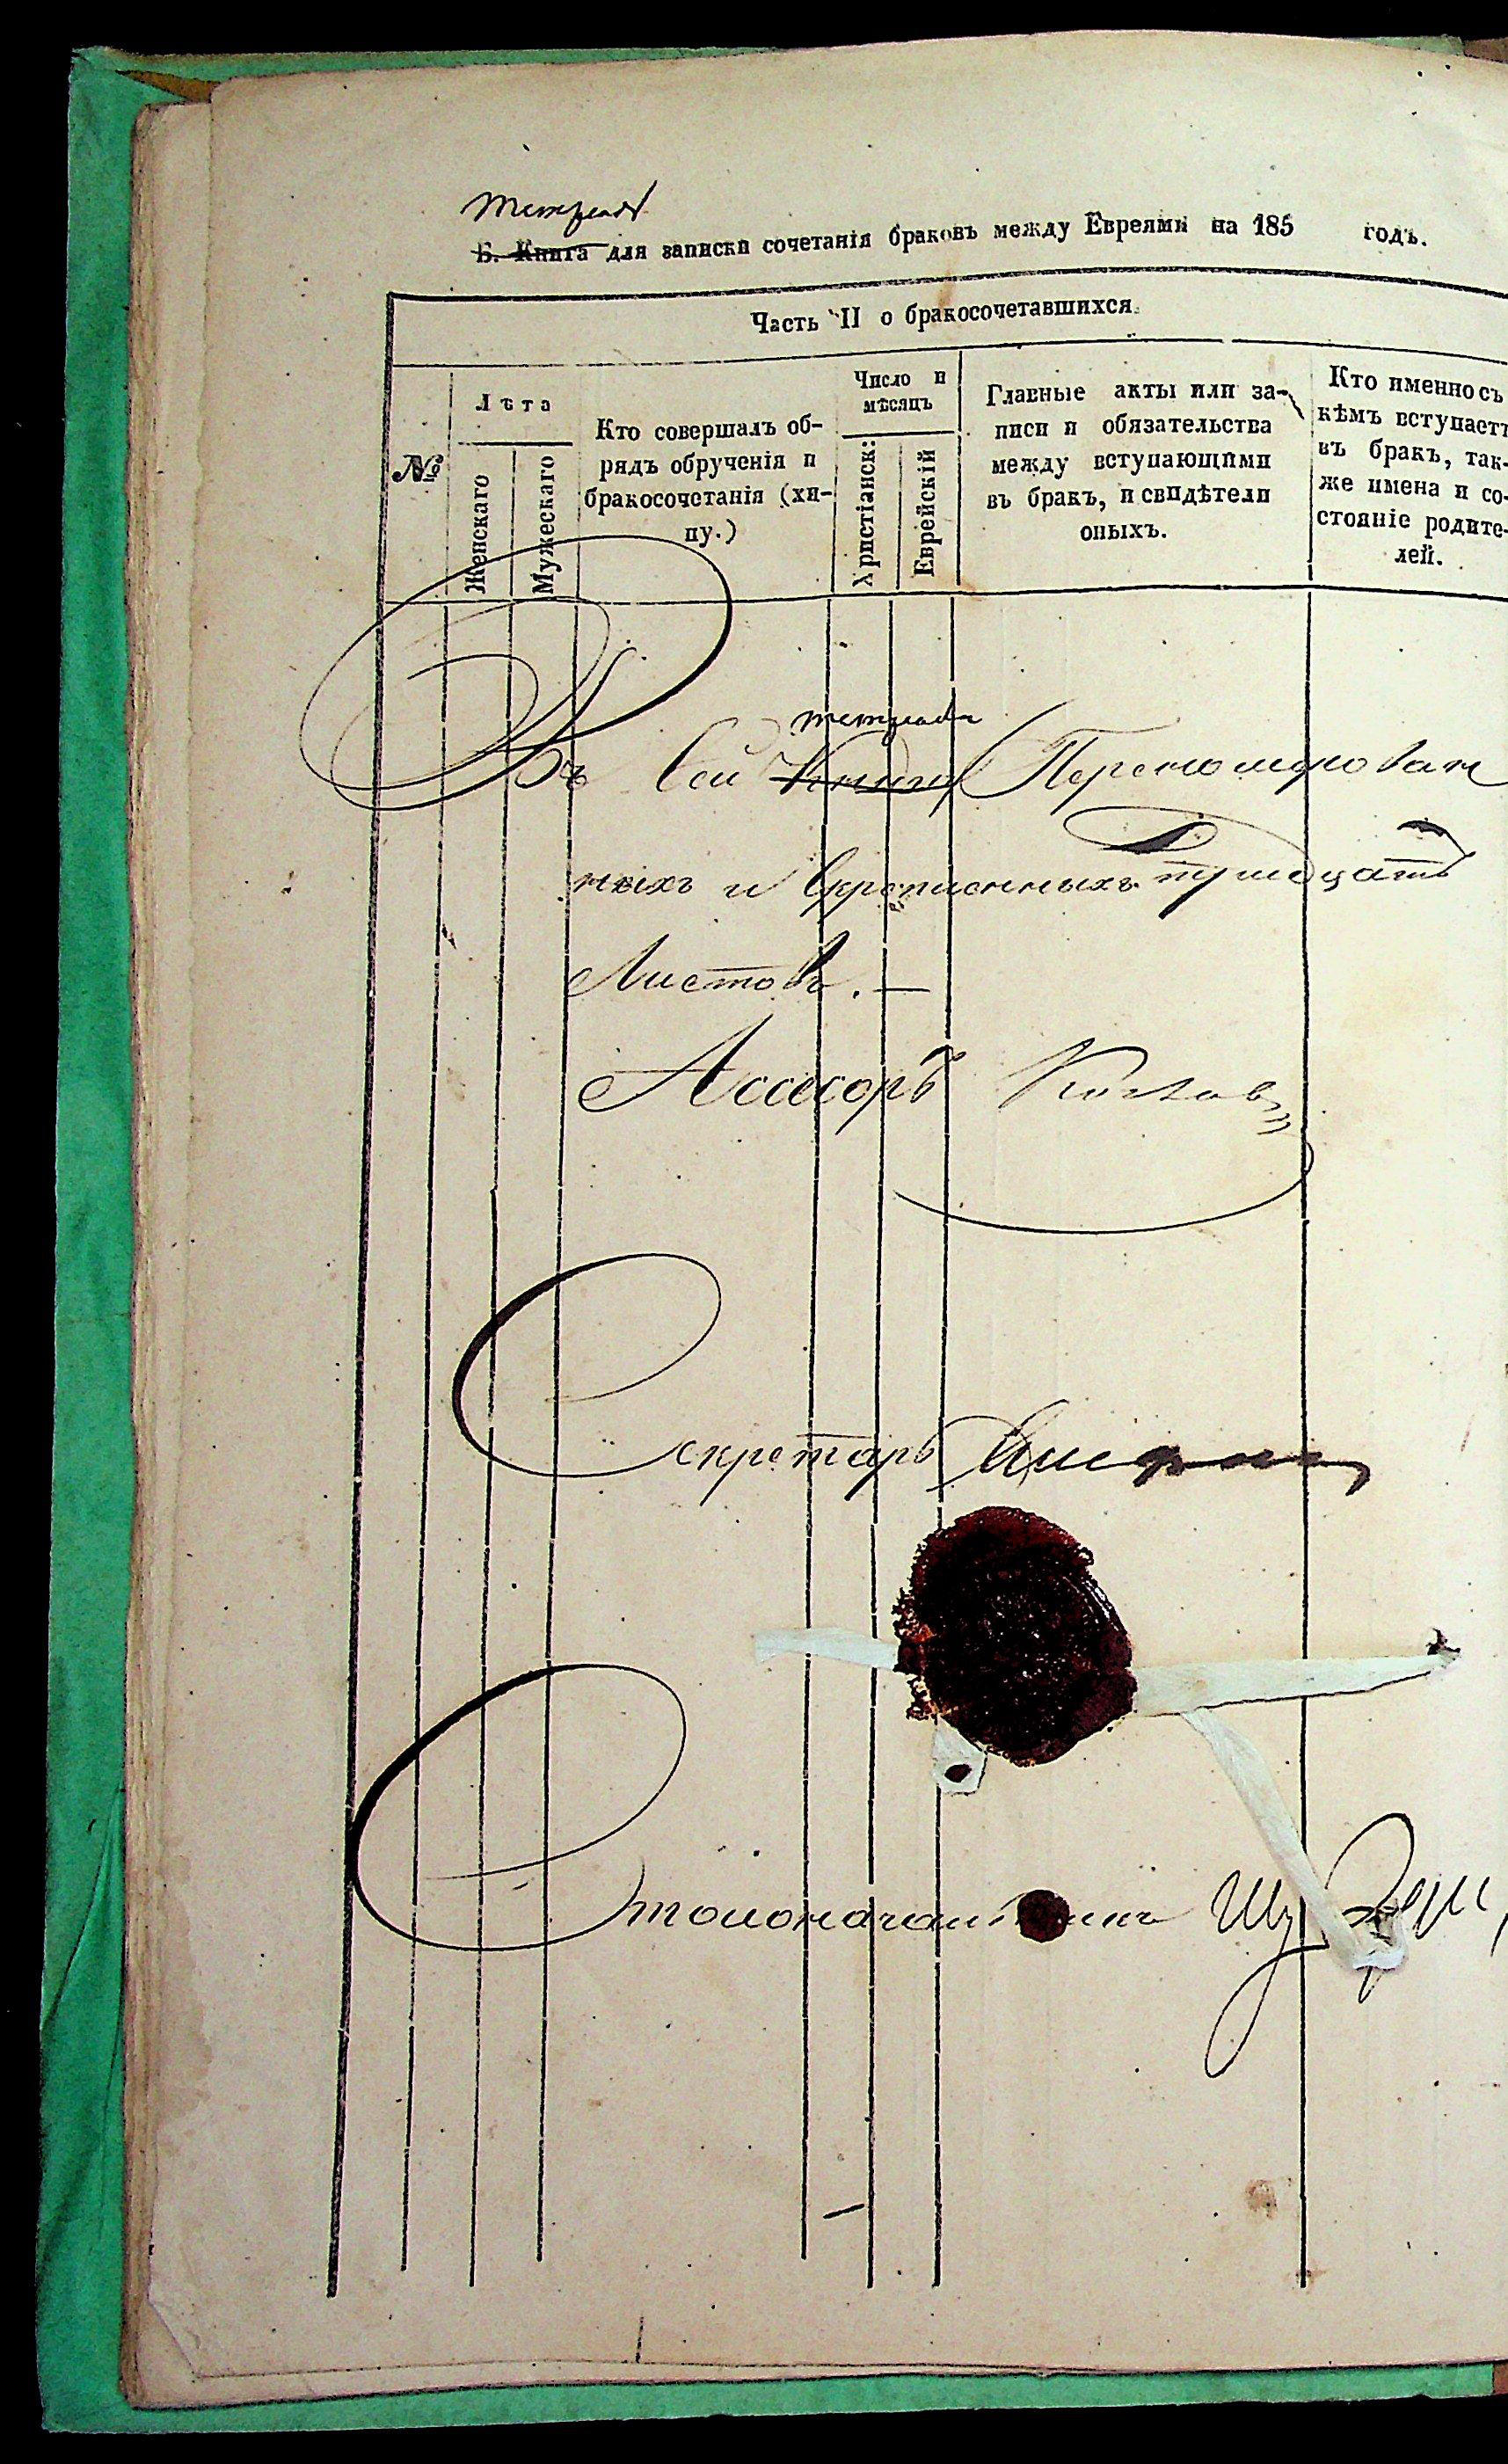 Тетрадь
Б. Книга для записки сочетанія браковъ между Евреями на 185 годъ.
Часть II о бракосочетавшихся.
№
Лѣта
Женскаго
Мужескаго
Кто совершалъ об-
рядъ обрученія и
бракосочетанія (хи-
пу.)
Число и
мѣсяцъ
Христіанск:
Еврейскій
Главные акты или за-
писи и обязательства
между вступающими
въ бракъ, и свидѣтели
оныхъ.
Кто именно съ
кѣмъ вступаетъ
въ бракъ, так-
же имена и со-
стояніе родите-
лей.
тетради
Въ сей Книги Перенумерован
ныхъ и скрепленныхъ тридцать
Листовъ. —
Ассесоръ
Секретарь
Столоначальникъ